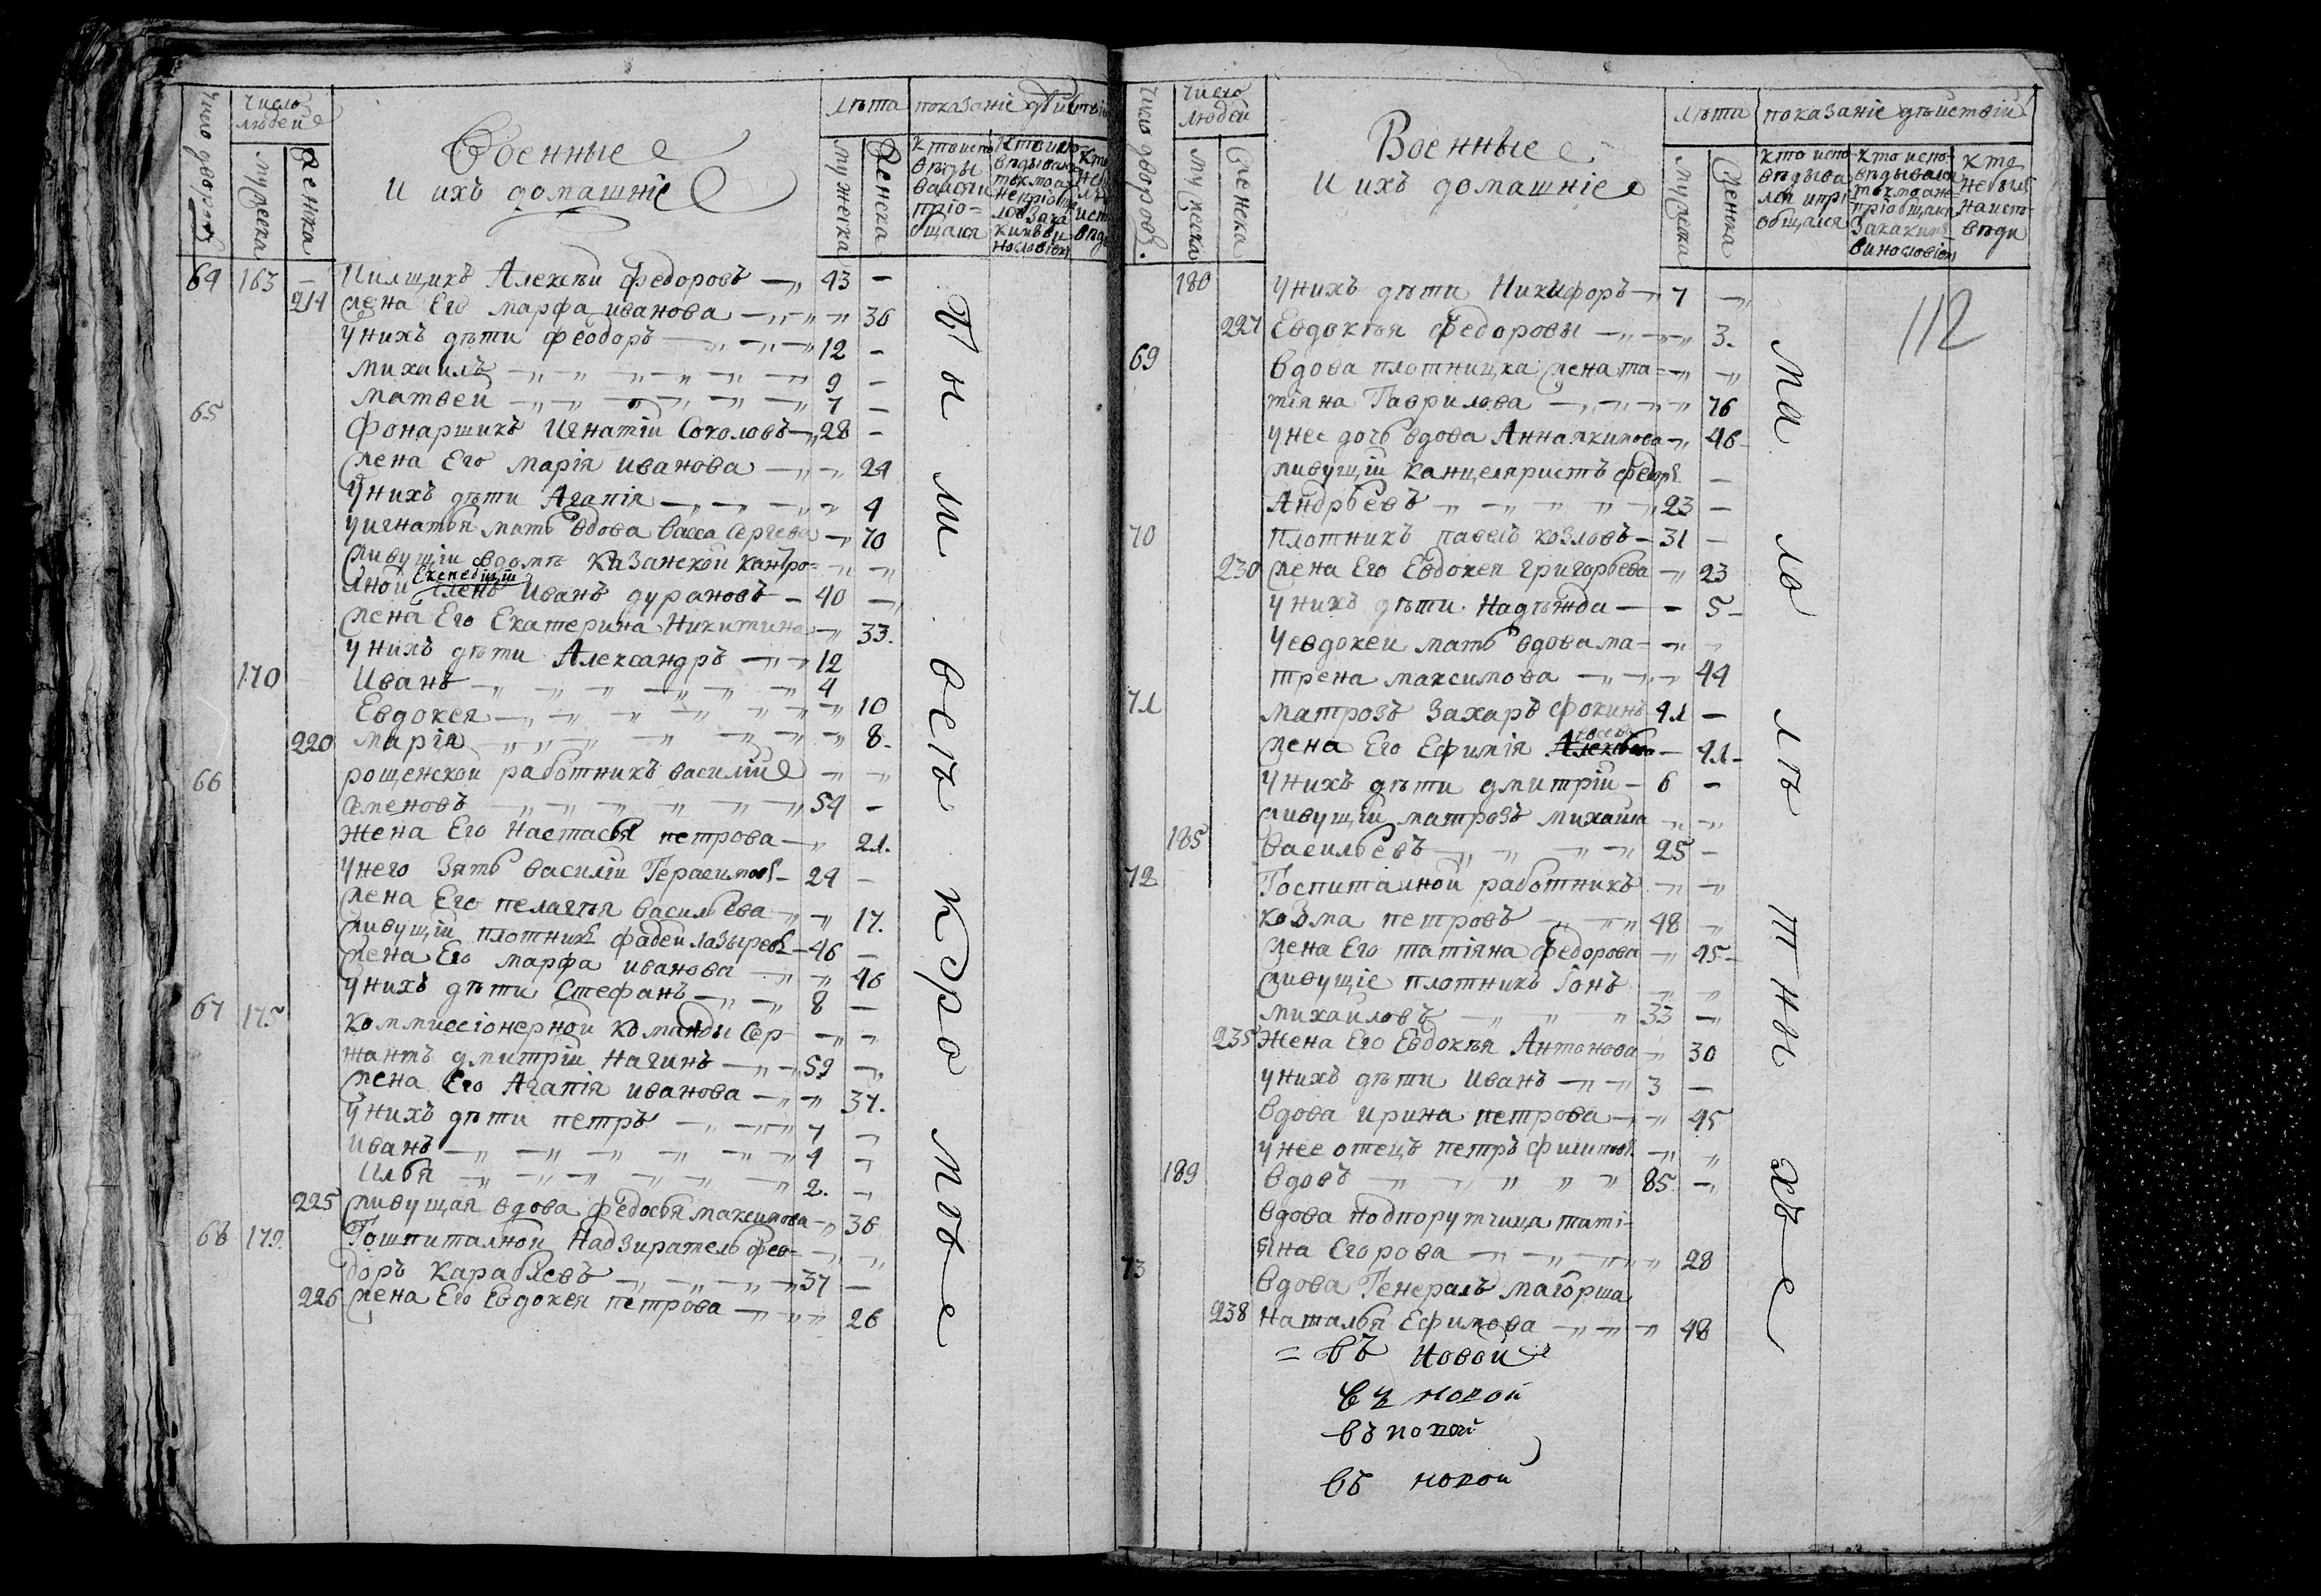 Число дворовъ
число людей
мужеска
женска
Военные
и ихъ домашніе
лѣта
мужеска
женска
показаніе дѣйствій
кто испо
вѣды
вался и
пріо=
бщался
64 163 — Пилщикъ Алексѣй федоровъ — 43 —
214 жена Его марфа иванова — 36
у нихъ дѣти феодоръ — 12 —
михаилъ — 9 —
матвей — 7 —
65 фонарщикъ Игнатій Соколовъ — 28 —
жена Его марія иванова — 24
У нихъ дѣти Агапія — 4
у игнатья мать вдова васса Сергеева — 70
живущій вдомѣ казанской кантро=
лной Експедиціи членъ Иванъ дурановъ — 40 —
жена Его Екатерина Никитина — 33.
у нихъ дѣти Александръ — 12
170 Иванъ — 4
Евдокея — 10
220 марія — 8.
66 рощенской работникъ василій
семеновъ — 54 —
жена Его Настасья петрова — 21.
унего зять василій Герасимовъ — 24 —
жена Его пелагѣя васильева — 17.
живущій плотникъ фадей лазыревъ — 46 —
жена Его марфа иванова — 46
у нихъ дѣти Стефанъ — 8 —
67 175 коммиссіонерной команды Сер —
жантъ дмитрій нагинъ — 59 —
жена Его Агапія иванова — 37.
у нихъ дѣти петръ — 7 —
иванъ — 4 —
Илья — 2. —
225 живущая вдова федосья максимова — 36
68 179. Гошпиталной надзиратель фео=
доръ карабаевъ — 37 —
226 жена Его Евдокея петрова — 26
ты ми всѣ кромѣ
Число дворовъ.
число людей
мужеска
женска
Военные
и ихъ домашніе
лѣта
мужеска
женска
показаніе дѣйствій
кто испо
вѣдыва
лся и прі
общался
кто испо
вѣдывался
токмо а не
пріобщался
за каким
виносло­віем
кто
не былъ
на испо
вѣди
112
180 у нихъ дѣти Никифоръ — 7 —
227 Евдокѣя федоровы — 3.
69 вдова плотницка жена та=
тіяна Гаврилова — 76
у нее дочь вдова Анна якимова — 46
живущій канцеляристъ федоръ —
Андрѣевъ — 23 —
70 плотникъ павелъ козловъ — 31 —
230 жена Его Евдокея григорьева — 23
у нихъ дѣти надѣжда — 5 —
у евдокеи мать вдова ма —
трена максимова — 44
71 матрозъ захаръ фокинъ 41 —
жена Его Ефимія — 41 —
у нихъ дѣти дмитрій — 6 —
живущій матрозъ михаила
185 васильевъ — 25 —
72 Госпиталной работникъ
козма петровъ — 48
жена Его татіяна федорова — 45 —
живущіе плотникъ Іонъ
михаиловъ — 33 —
235 жена Его Евдокѣя Антонова — 30
у нихъ дѣти иванъ — 3 —
вдова ирина петрова — 45
у нее отецъ петръ филиповъ
189 вдовъ — 85. —
вдова подпорутчица таті-
яна Егорова — 28
73 вдова Генералъ маіорша
238 наталья Ефимова — 48
малолѣтныхъ
= въ новой
въ новой
въ новой
въ новой